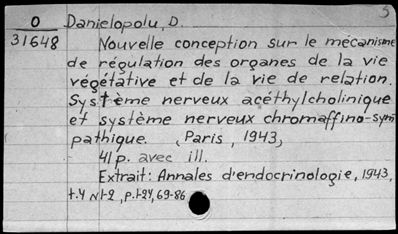 5
O Danielopolu, D.
31648
Nouvelle conception sur le mécanisme
de régulation des organes de la vie
végétative et de la vie de relation.
Système nerveux acéthylcholinique
et système nerveux chromaffino-sym
pathique. (Paris, 1943)
41 p. avec ill.
Extrait: Annales d'endocrinologie, 1943,
t.4 N 1-2, p.1-24, 69-86